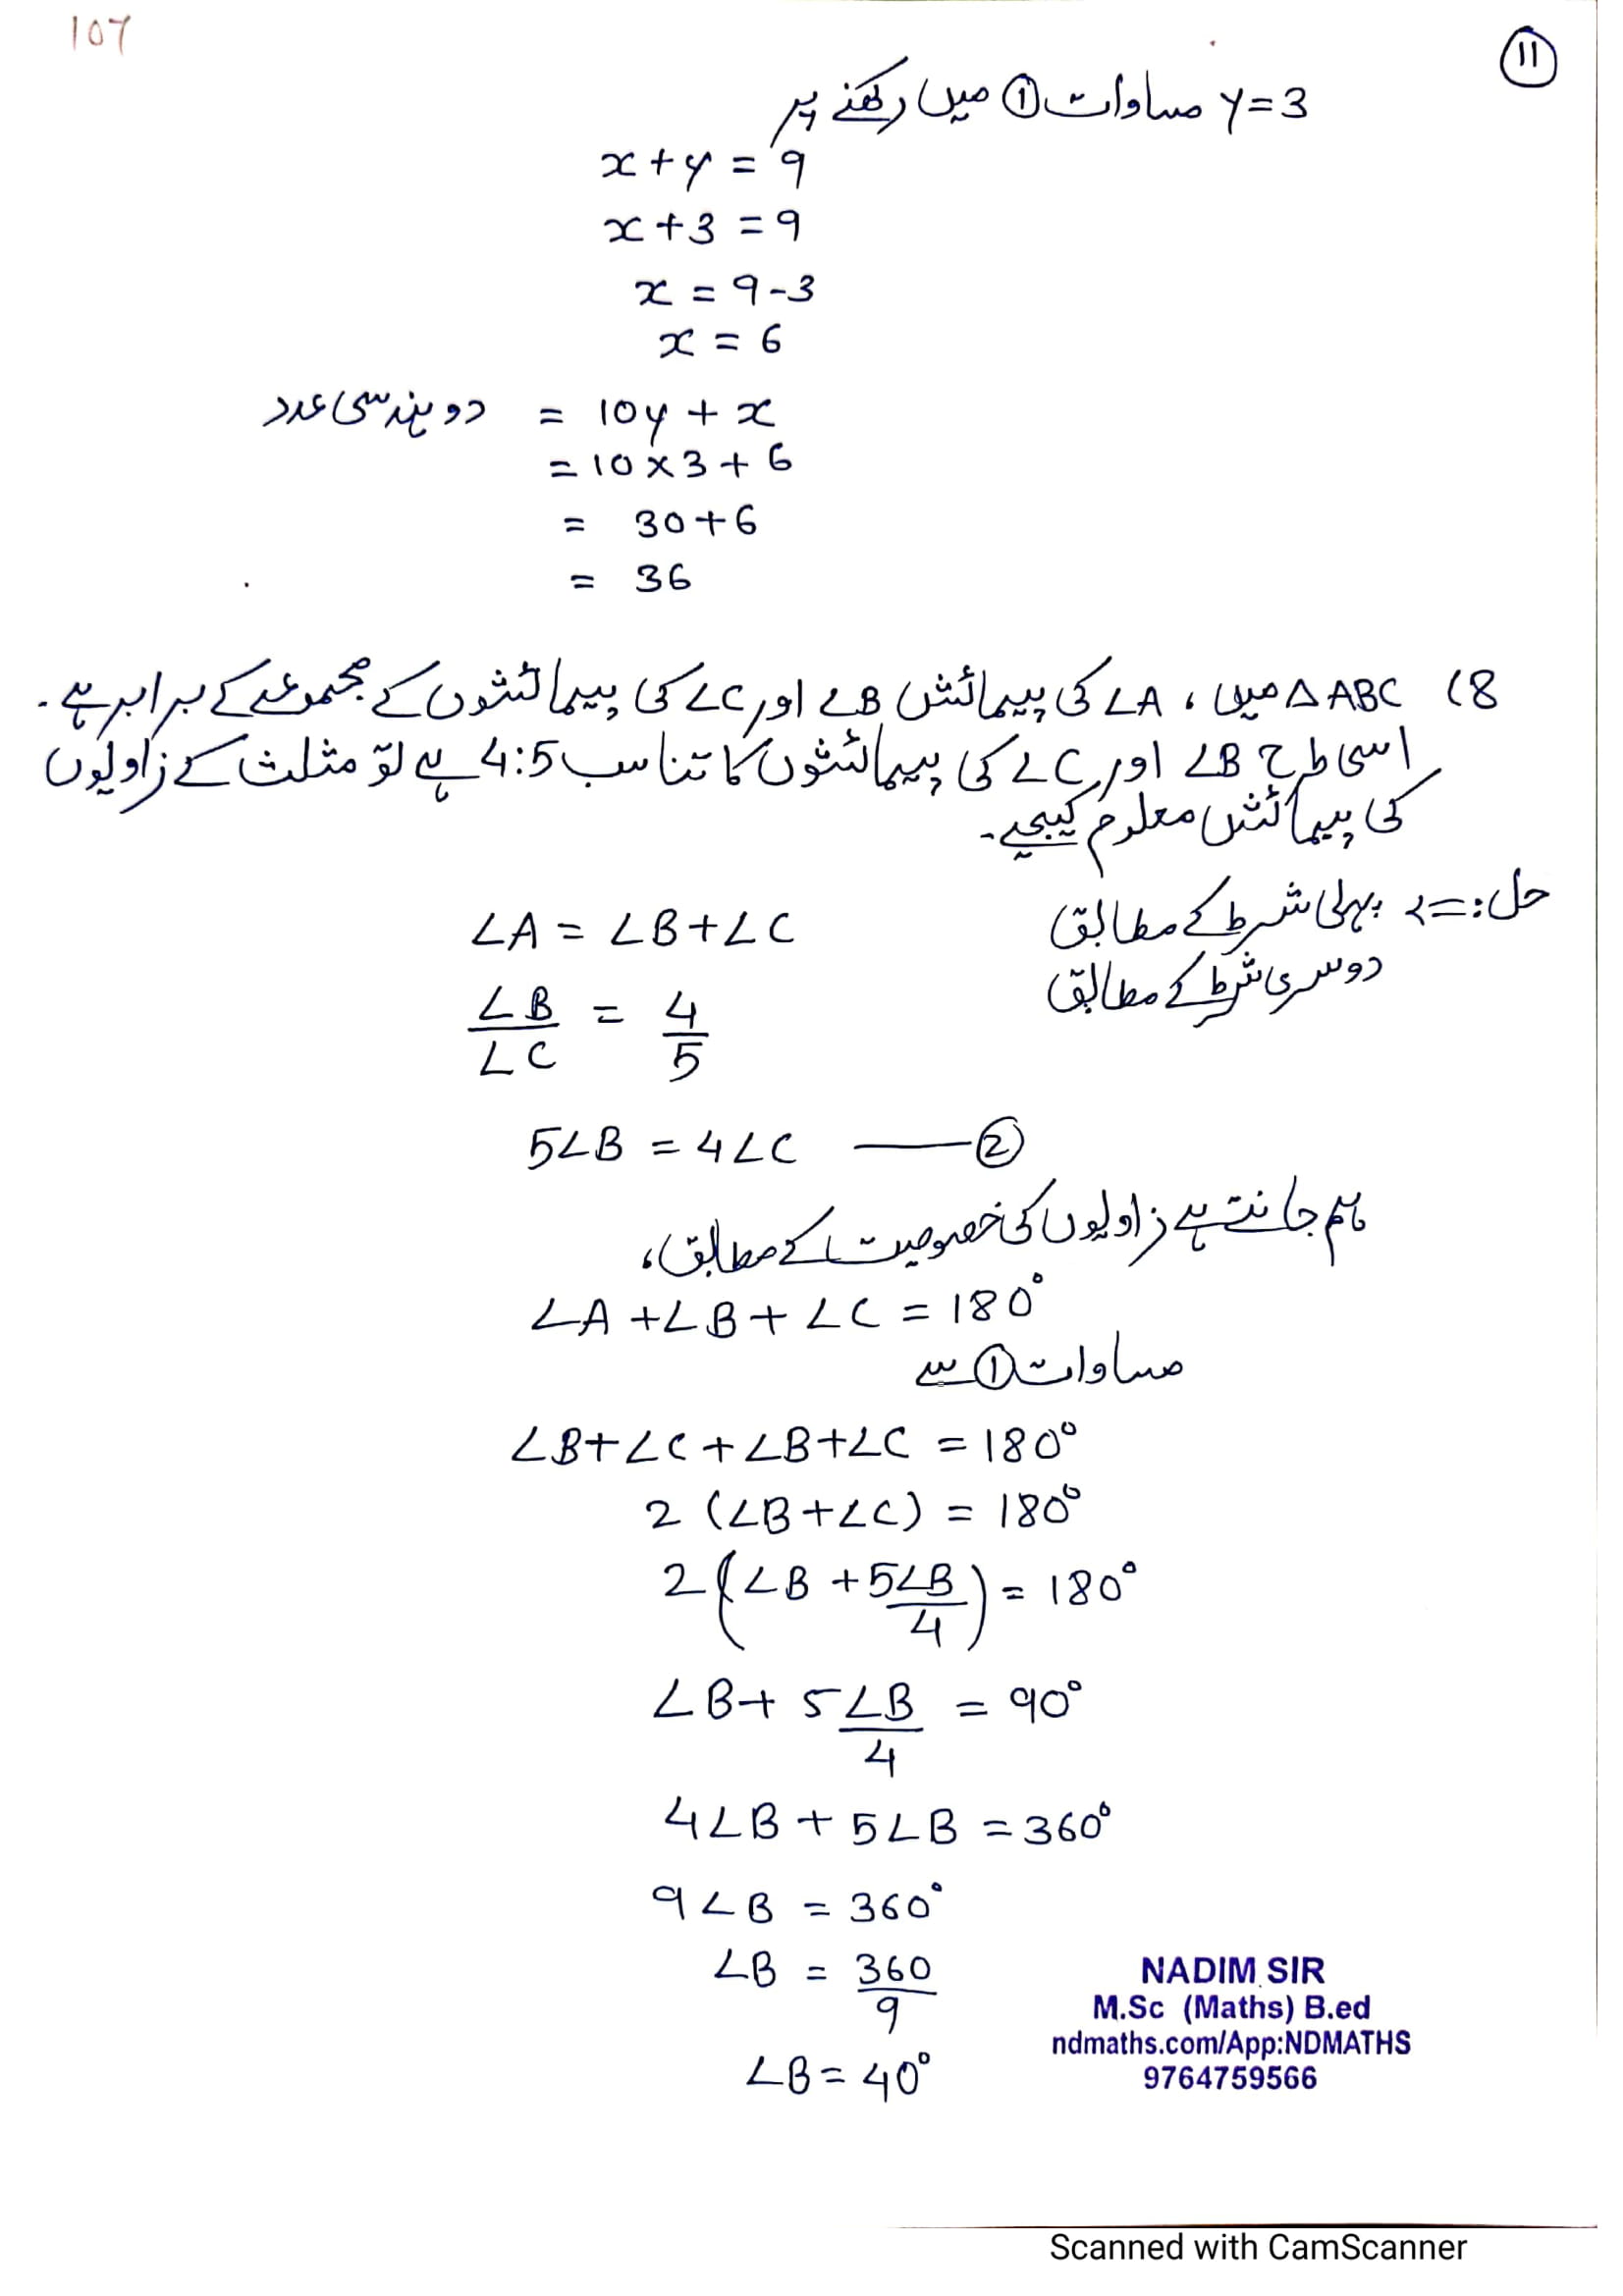 107
11
y=3 مساوات ① میں رکھنے پر
x+y = 9
x+3 = 9
x = 9-3
x = 6
دو ہندسی عدد = 10y + x
= 10 x 3 + 6
= 30+6
= 36
8) ΔABC میں ، ∠A کی پیمائش ∠B اور ∠C کی پیمائشوں کے مجموعے کے برابر ہے۔
اسی طرح ∠B اور ∠C کی پیمائشوں کا تناسب 4:5 ہے تو مثلث کے زاویوں
کی پیمائش معلوم کیجیے۔
حل:=> پہلی شرط کے مطابق ∠A = ∠B+∠C
دوسری شرط کے مطابق ∠B/∠C = 4/5
5∠B = 4∠C —— ②
ہم جانتے ہے زاویوں کی خصوصیت کے مطابق،
∠A +∠B + ∠C = 180°
مساوات ① سے
∠B+∠C+∠B+∠C = 180°
2 (∠B+∠C) = 180°
2(∠B + 5∠B/4) = 180°
∠B+ 5∠B/4 = 90°
4∠B + 5∠B = 360°
9∠B = 360°
∠B = 360/9
∠B = 40°
NADIM SIR
M.Sc (Maths) B.ed
ndmaths.com/App:NDMATHS
9764759566
Scanned with CamScanner